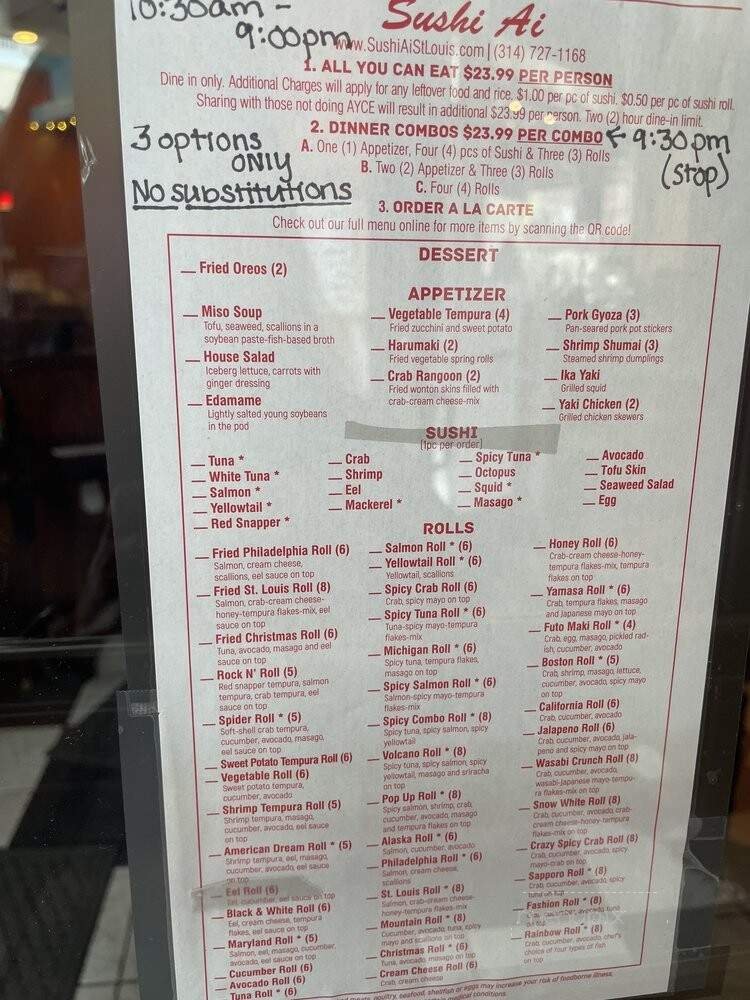 10:30am -
9:00pm
Sushi Ai
www.SushiAiStLouis.com | (314) 727-1168
1. ALL YOU CAN EAT $23.99 PER PERSON
Dine in only. Additional Charges will apply for any leftover food and rice. $1.00 per pc of sushi. $0.50 per pc of sushi roll.
Sharing with those not doing AYCE will result in additional $23.99 per person. Two (2) hour dine-in limit.
3 options
ONLY
No substitutions
2. DINNER COMBOS $23.99 PER COMBO ← 9:30pm
(stop)
A. One (1) Appetizer, Four (4) pcs of Sushi & Three (3) Rolls
B. Two (2) Appetizer & Three (3) Rolls
C. Four (4) Rolls
3. ORDER A LA CARTE
Check out our full menu online for more items by scanning the QR code!
DESSERT
Fried Oreos (2)
APPETIZER
Miso Soup
Tofu, seaweed, scallions in a
soybean paste-fish-based broth
House Salad
Iceberg lettuce, carrots with
ginger dressing
Edamame
Lightly salted young soybeans
in the pod
Vegetable Tempura (4)
Fried zucchini and sweet potato
Harumaki (2)
Fried vegetable spring rolls
Crab Rangoon (2)
Fried wonton skins filled with
crab-cream cheese-mix
Pork Gyoza (3)
Pan-seared pork pot stickers
Shrimp Shumai (3)
Steamed shrimp dumplings
Ika Yaki
Grilled squid
Yaki Chicken (2)
Grilled chicken skewers
SUSHI
(1pc per order)
Tuna *
White Tuna *
Salmon *
Yellowtail *
Red Snapper *
Crab
Shrimp
Eel
Mackerel *
Spicy Tuna *
Octopus
Squid *
Masago *
Avocado
Tofu Skin
Seaweed Salad
Egg
ROLLS
Fried Philadelphia Roll (6)
Salmon, cream cheese,
scallions, eel sauce on top
Fried St. Louis Roll (8)
Salmon, crab-cream cheese-
honey-tempura flakes-mix, eel
sauce on top
Fried Christmas Roll (6)
Tuna, avocado, masago and eel
sauce on top
Rock N' Roll (5)
Red snapper tempura, salmon
tempura, crab tempura, eel
sauce on top
Spider Roll * (5)
Soft-shell crab tempura,
cucumber, avocado, masago,
eel sauce on top
Sweet Potato Tempura Roll (6)
Vegetable Roll (6)
Sweet potato tempura,
cucumber, avocado
Shrimp Tempura Roll (5)
Shrimp tempura, masago,
cucumber, avocado, eel sauce
on top
American Dream Roll * (5)
Shrimp tempura, eel, masago,
cucumber, avocado, eel sauce
on top
Eel Roll (6)
Eel, cucumber, eel sauce on top
Black & White Roll (6)
Eel, cream cheese, tempura
flakes, eel sauce on top
Maryland Roll * (5)
Salmon, eel, masago, cucumber,
avocado, eel sauce on top
Cucumber Roll (6)
Avocado Roll (6)
Tuna Roll * (6)
Salmon Roll * (6)
Yellowtail Roll * (6)
Yellowtail, scallions
Spicy Crab Roll (6)
Crab, spicy mayo on top
Spicy Tuna Roll * (6)
Tuna-spicy mayo-tempura
flakes-mix
Michigan Roll * (6)
Spicy tuna, tempura flakes,
masago on top
Spicy Salmon Roll * (6)
Salmon-spicy mayo-tempura
flakes-mix
Spicy Combo Roll * (8)
Spicy tuna, spicy salmon, spicy
yellowtail
Volcano Roll * (8)
Spicy tuna, spicy salmon, spicy
yellowtail, masago and sriracha
on top
Pop Up Roll * (8)
Spicy salmon, shrimp, crab,
cucumber, avocado, masago
and tempura flakes on top
Alaska Roll * (6)
Salmon, cucumber, avocado
Philadelphia Roll * (6)
Salmon, cream cheese,
scallions
St. Louis Roll * (8)
Salmon, crab-cream cheese-
honey-tempura flakes-mix
Mountain Roll * (8)
Cucumber, avocado, tuna, spicy
mayo and scallions on top
Christmas Roll * (6)
Tuna, avocado, masago on top
Cream Cheese Roll (6)
Crab, cream cheese
Honey Roll (6)
Crab-cream cheese-honey-
tempura flakes-mix, tempura
flakes on top
Yamasa Roll * (6)
Crab, tempura flakes, masago
and Japanese mayo on top
Futo Maki Roll * (4)
Crab, egg, masago, pickled rad-
ish, cucumber, avocado
Boston Roll * (5)
Crab, shrimp, masago, lettuce,
cucumber, avocado, spicy mayo
on top
California Roll (6)
Crab, cucumber, avocado
Jalapeno Roll (6)
Crab, cucumber, avocado, jala-
peno and spicy mayo on top
Wasabi Crunch Roll (8)
Crab, cucumber, avocado,
wasabi-Japanese mayo-tempu-
ra flakes-mix on top
Snow White Roll (8)
Crab, cucumber, avocado, crab-
cream cheese-honey-tempura
flakes-mix on top
Crazy Spicy Crab Roll (8)
Crab, cucumber, avocado, spicy
mayo-crab on top
Sapporo Roll * (8)
Crab, cucumber, avocado, spicy
tuna on top
Fashion Roll * (8)
Crab, cucumber, avocado, tuna
on top
Rainbow Roll * (8)
Crab, cucumber, avocado, chef's
choice of four types of fish
on top
meats, poultry, seafood, shellfish or eggs may increase your risk of foodborne illness,
medical conditions.